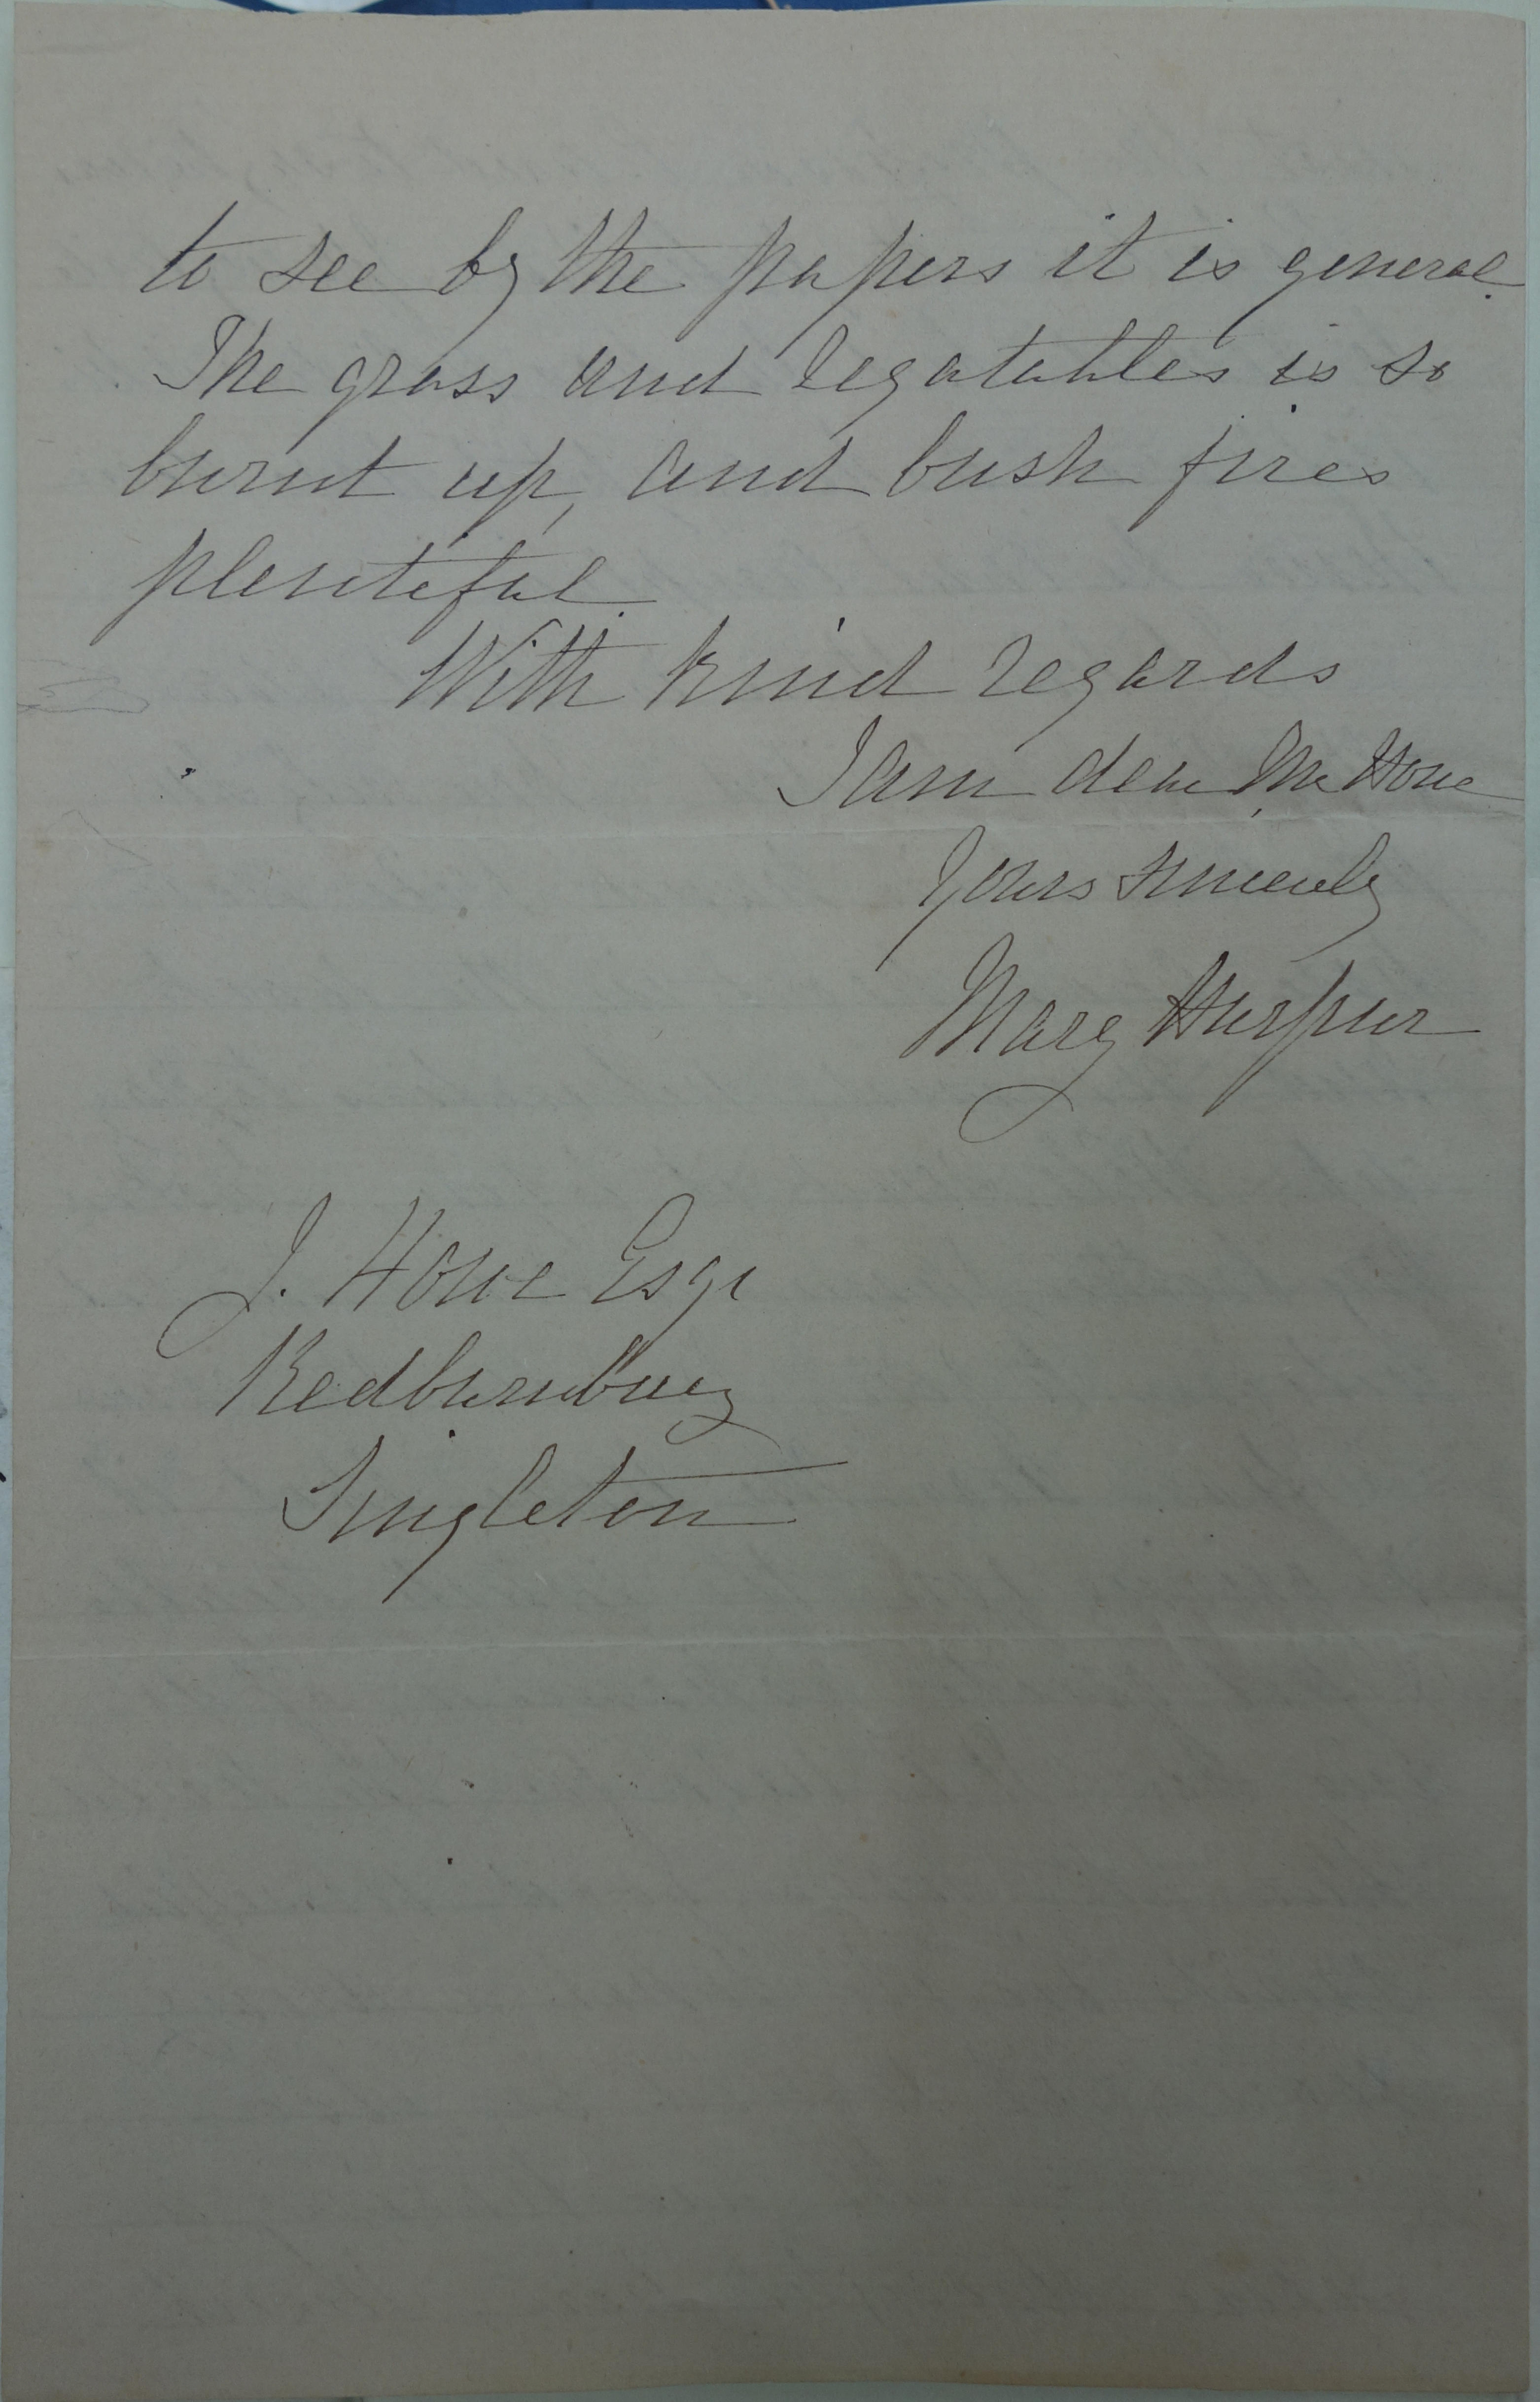 to see by the papers it is general.
The grass and vegatables is so
burnt up, and bush fires
plenteful.
With kind regards
I am dear Mr Howe
Yours sincerely
Mary Harpur
J. Howe Esqr
Redbournbury
Singleton